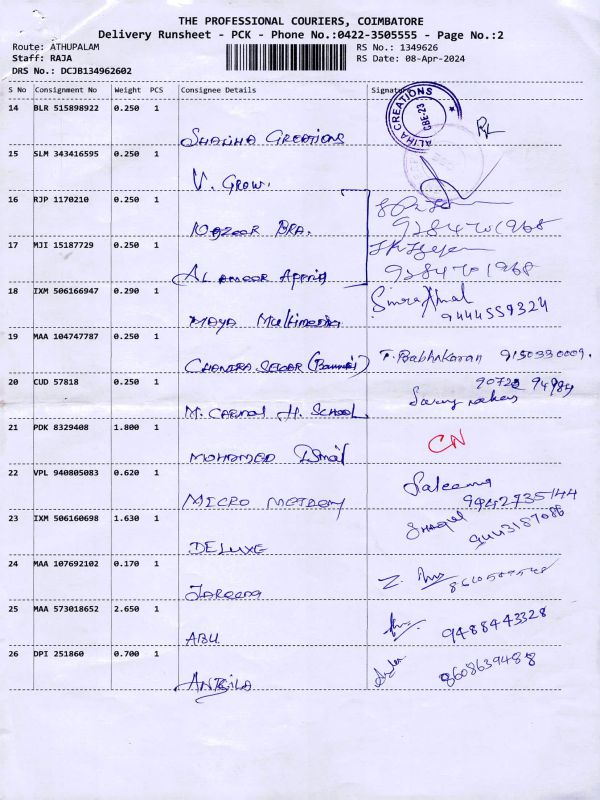 THE PROFESSIONAL COURIERS, COIMBATORE
Delivery Runsheet - PCK - Phone No.:0422-3505555 - Page No.:2
Route: ATHUPALAM RS No.: 1349626
Staff: RAJA RS Date: 08-Apr-2024
DRS No.: DCJB134962602
S No Consignment No Weight PCS Consignee Details Signature
14 BLR 515898922 0.250 1
ALIHA CREATIONS CBE-23
CREATIONS
15 SLM 343416595 0.250 1
V. Grow.
16 RJP 1170210 0.250 1
BRA. 9284701968
17 MJI 15187729 0.250 1
AL AMEER 9284701968
18 IXM 506166947 0.290 1
MAYA Multimedia 9444559324
19 MAA 104747787 0.250 1
CHANDRA SEGAR T. Babhakaran 9150330009.
20 CUD 57818 0.250 1
M. CARMAL H. SCHOOL
21 PDK 8329408 1.800 1
MOHAMED Ismail CN
22 VPL 940805083 0.620 1
MICRO Saleema 9442735144
23 IXM 506160698 1.630 1
DELUXE 9443187086
24 MAA 107692102 0.170 1
Zareena
25 MAA 573018652 2.650 1
ABU 9488443328
26 DPI 251860 0.700 1
8608639488